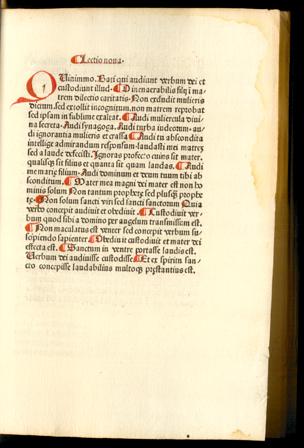 Lectio nona.
Uinimmo. Bati qui audiunt verbum dei et
custodiunt illud. O inenarrabilis filii i ma
trem dilectio caritatis. Non eruduit mulieris
dictum. sed extollit incognitum. non matrem reprobat
sed ipsam in sublime exaltat. Audi muliercula divi
na secreta. Audi synagoga. Audi turba iudeorum. au
di ignorantia mulieris et crassa Audi tu abscondita
intellige admirandum responsum. laudasti mei matrem
sed a laude defecisti. Ignoras profecto cuius sit mater.
qualisque sit filius et quanta sit quam laudas. Audi
me matris filium. Audi dominum et deum tuum tibi ab
sconditum. Mater mea magni dei mater est non ho
minis solum Non tantum prophete sed plusque prophe
te. Non solum sancti viri sed sancti sanctorum Quia
verbo concepit audiuit et obediuit. Custodiuit ver
bum quod sibi a domino per angelum transmissum est.
Non maculatus est venter sed concepit verbum su-
scipiendo sapienter Obediuit custodiuit et mater dei
effecta est. Sanctum in ventre portasse laudis est.
Uerbum dei audiuisse custodisse Et ex spiritu san-
cto concepisse laudabilius multoque prestantius est.